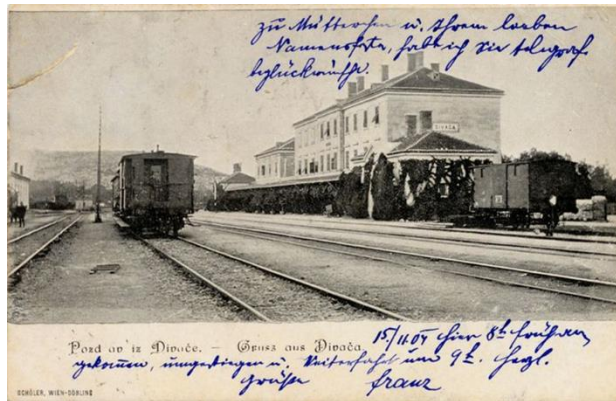 zu Mütterchen u. Ihrem lieben
Namensfeste, habe ich Sie telegraf.
beglückwünscht.
DIVAČA
Pozdrav iz Divače. – Gruss aus Divača.
15./11.04 hier 8h früh an
gekommen, umgestiegen u. Weiterfahrt um 9h. Herzl.
Grüße Franz
SCHÖLER, WIEN-DÖBLING